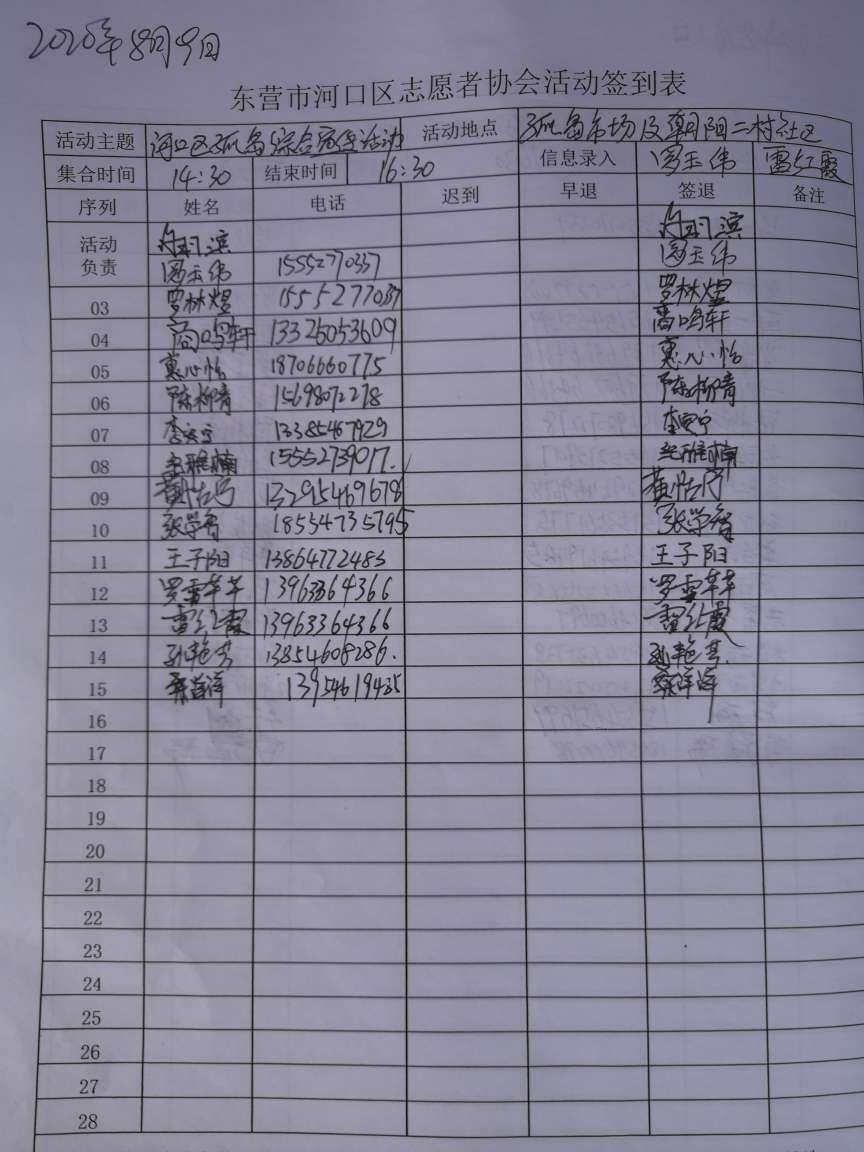 2020年8月9日
东营市河口区志愿者协会活动签到表
活动主题 河口区孤岛综合宣传活动 活动地点 孤岛市场及朝阳二村社区
集合时间 14:30 结束时间 16:30 信息录入 雷红霞
序列 姓名 电话 迟到 早退 签退 备注
活动
负责 15552770337
03 罗林煜 15552770337 罗林煜
04 高鸣轩 13326053609 高鸣轩
05 惠心怡 18706660775 惠心怡
06 陈柳青 15698072278 陈柳青
07 13385467929
08 15552739017.
09 13295469678
10 张学智 18534735795 张学智
11 王子阳 13864772483 王子阳
12 罗雪苹 13963364366 罗雪苹
13 雷红霞 13963364366 雷红霞
14 孙艳芳 13854608286. 孙艳芳
15 13954619435
16
17
18
19
20
21
22
23
24
25
26
27
28